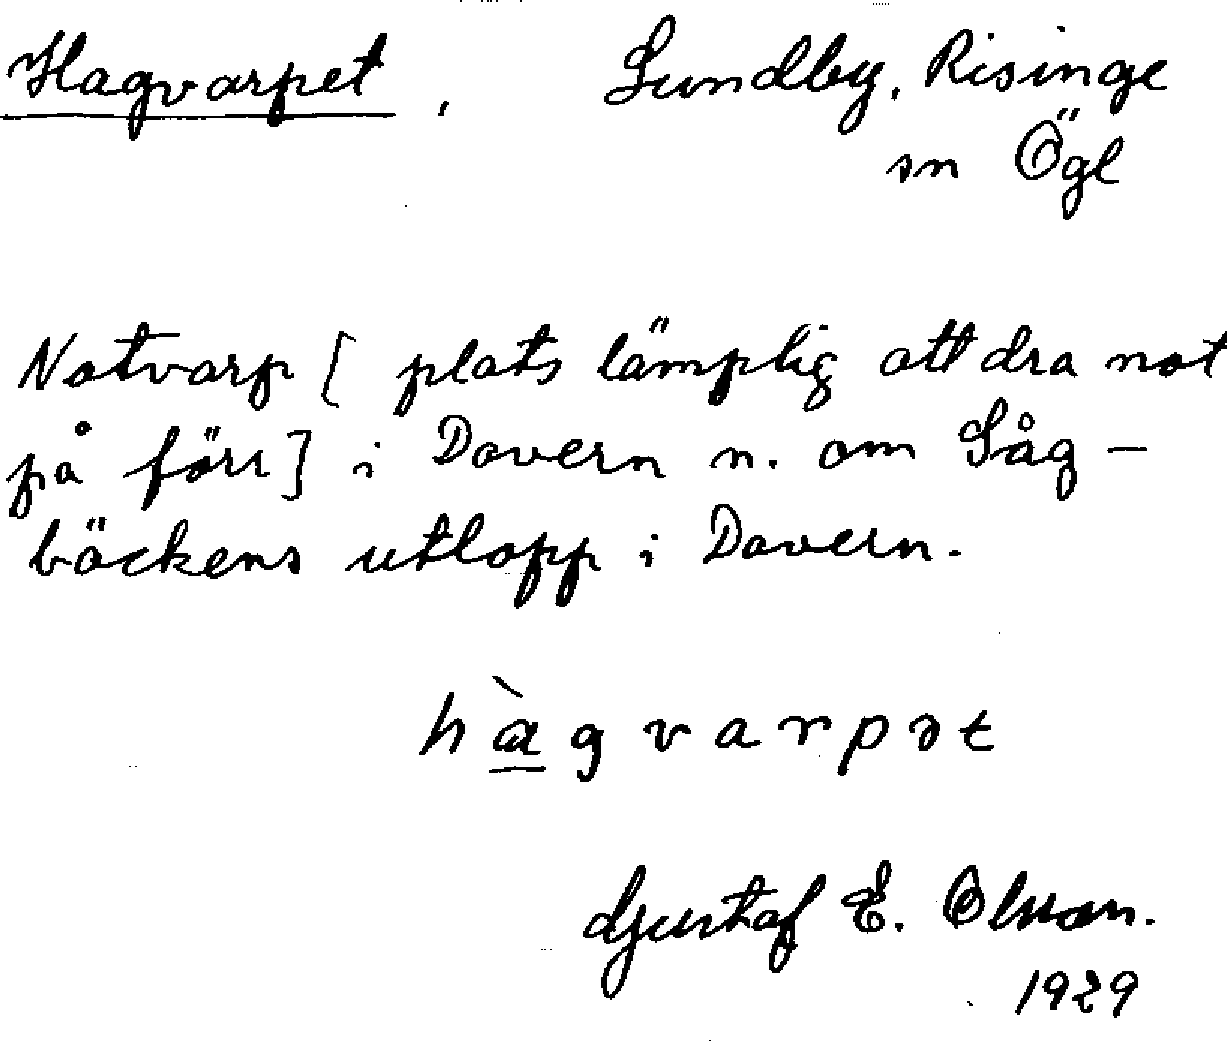 Hagvarpet, Lundby, Risinge
sn Ögl
Notvarp [ plats lämplig att dra not
på förr ] i Dovern n. om Såg-
bäckens utlopp i Dovern.
hàgvarpət
Gustaf E. Olsson.
1929